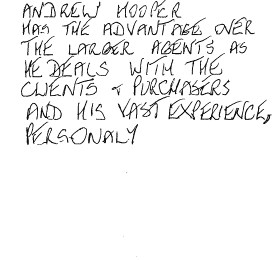 ANDREW HOOPER
HAS THE ADVANTAGE OVER
THE LARGER AGENTS AS
HE DEALS WITH THE
CLIENTS & PURCHASERS
AND HIS VAST EXPERIENCE,
PERSONALY